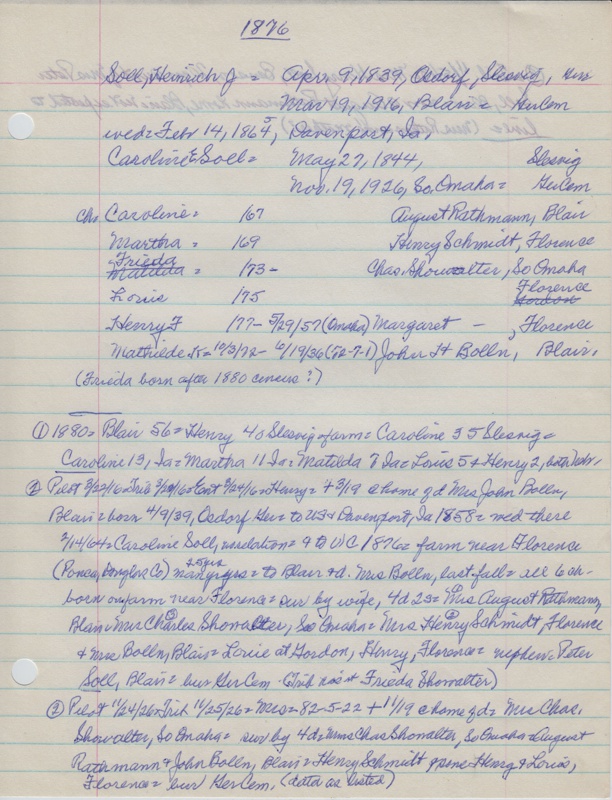 1876
Soll, Heinrich J = Apr. 9, 1839, Osdorf, Slesvig,
Mar 19, 1916, Blair = GerCem
wed = Febr 14, 1864, Davenport, Ia,
Caroline E Soll = May 27, 1844, Slesvig
Nov. 19, 1926, So. Omaha = GerCem
ch. Caroline = 167 August Rathmann, Blair
Martha = 169 Henry Schmidt, Florence
Frieda
Matilda = 173 - Chas. Showalter, So Omaha
Florence
Louis 175 Gordon
Henry F 177 - 5/29/57 (Omaha) Margaret - , Florence
Mathilde K = 10/3/72 - 6/19/36 (72-7-1) John H Bolln, Blair.
(Frieda born after 1880 census?)
① 1880 = Blair 56 = Henry 40 Slesvig = farm = Caroline 35 Slesvig =
Caroline 13, Ia = Martha 11 Ia = Matilda 7 Ia = Louis 5 + Henry 2, both Nebr.
② Pilot 3/22/16 = Trib 3/24/16 = Ent 3/24/16 = Henry = + 3/19 @ home of d Mrs John Bolln,
Blair = born 4/9/39, Osdorf Ger = to US + Davenport, Ia 1858 = wed there
2/14/64 = Caroline Soll, no relation = 9 to WC 1876 = farm near Florence
(Ponca, Douglas Co) many yrs = to Blair + d. Mrs Bolln, last fall = all 6 ch
born on farm near Florence = sur by wife, 4d 2s = Mrs August Rathmann,
Blair = Mrs Charles Showalter, So Omaha = Mrs Henry Schmidt, Florence
+ Mrs Bolln, Blair = Louie at Gordon, Henry, Florence = nephew = Peter
Soll, Blair = bur GerCem (Trib has it Frieda Showalter)
③ Pilot 11/24/26 = Trib 11/25/26 = Mrs = 82-5-22 + 11/19 @ home of d = Mrs Chas.
Showalter, So Omaha = sur by 4d = Mrs Chas Showalter, So Omaha = August
Rathmann + John Bolln, Blair = Henry Schmidt + sons Henry + Louis,
Florence = bur GerCem. (data as listed)